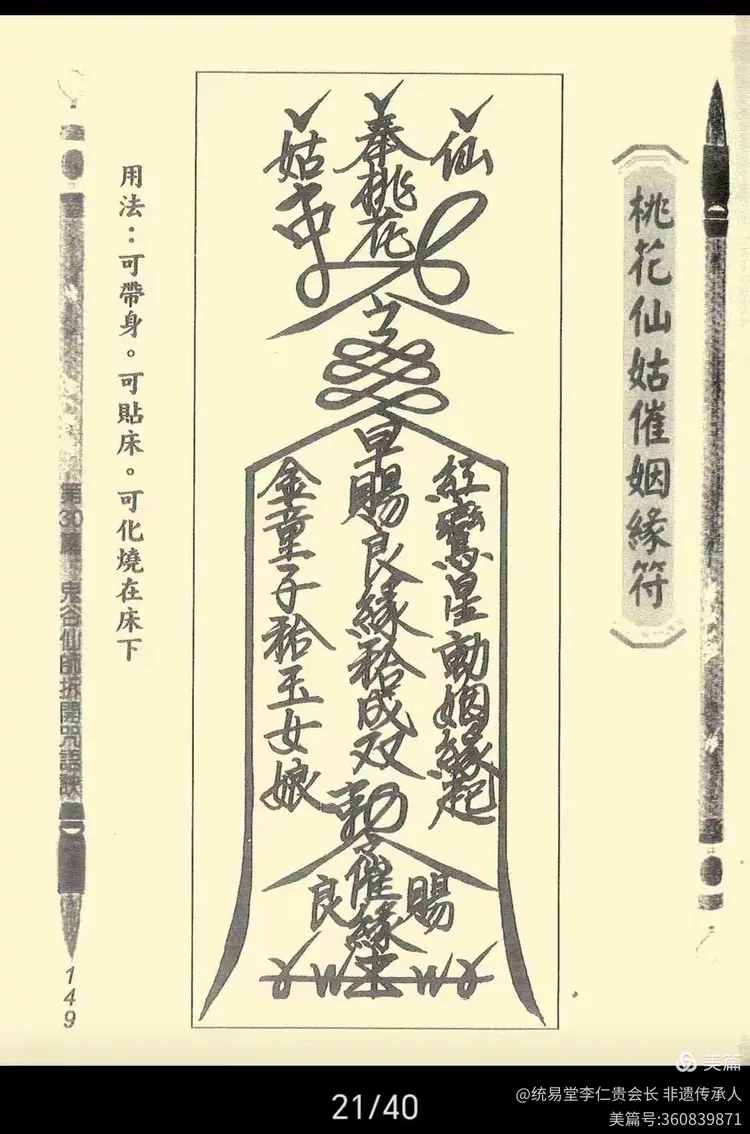 桃花仙姑催姻緣符
仙
奉桃花
姑
早賜良緣
成双
紅鸞星動姻緣起
金童子
玉女娘
勅令
賜
催緣
良
用法：可帶身。可貼床。可化燒在床下
第30篇 鬼谷仙師拆開咒語訣
149
美篇
21/40
@统易堂李仁贵会长 非遗传承人
美篇号:360839871